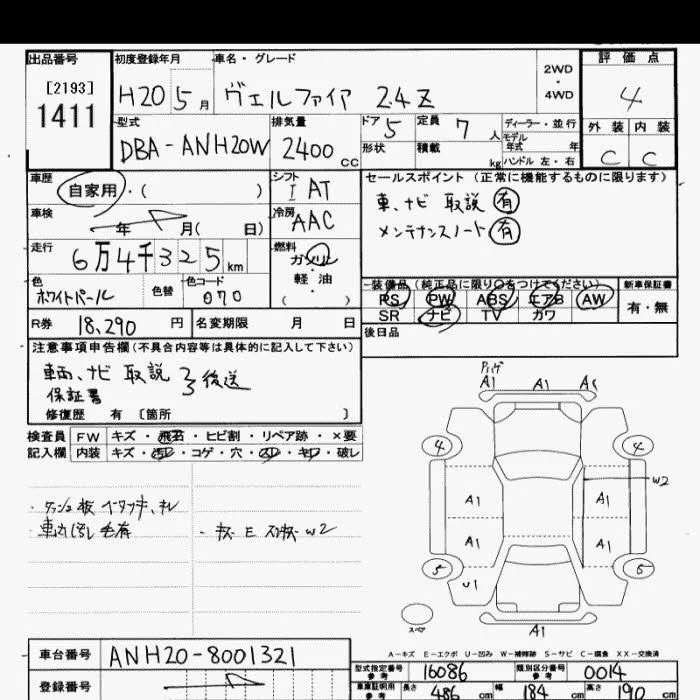 出品番号 初度登録年月 車名・グレード 評価点
[2193]
1411
H20 5月 ヴェルファイア 2.4Z 2WD・4WD 4
型式 排気量 ドア 5 定員 7人 ディーラー・並行 外装 内装
DBA-ANH20W 2400cc 形状 積載 kg モデル年式 年 ハンドル 左・右 C C
車歴 シフト セールスポイント (正常に機能するものに限ります)
自家用・( ) I AT 車、ナビ 取説 有
車検 冷房 メンテナンスノート 有
年 月( 日) AAC
走行 燃料
6万4千325km ガソリン・軽油
( )
色 色替 色コード 装備品(純正品に限り○をつけてください) 新車保証書
ホワイトパール 070 PS PW ABS エアB AW 有・無
SR ナビ TV カワ
R券 18,290円 名変期限 月 日 後日品
注意事項申告欄(不具合内容等は具体的に記入して下さい)
車両、ナビ 取説 後送
保証書
修復歴 有 〔箇所 〕
検査員 FW キズ・飛石・ヒビ割・リペア跡・×要
記入欄 内装 キズ・汚レ・コゲ・穴・スレ・キレ・破レ
A1 A1
4 4
W2
A1 A1
A1 A1
5 5
U1
スペア
A1
A-キズ E-エクボ U-凹み W-補修跡 S-サビ C-腐食 XX-交換済
車台番号 ANH20-8001321
型式指定番号 参考 16086 類別区分番号 参考 0014
登録番号
車庫証明用 参考 長さ 486cm 幅 184cm 高さ 190cm